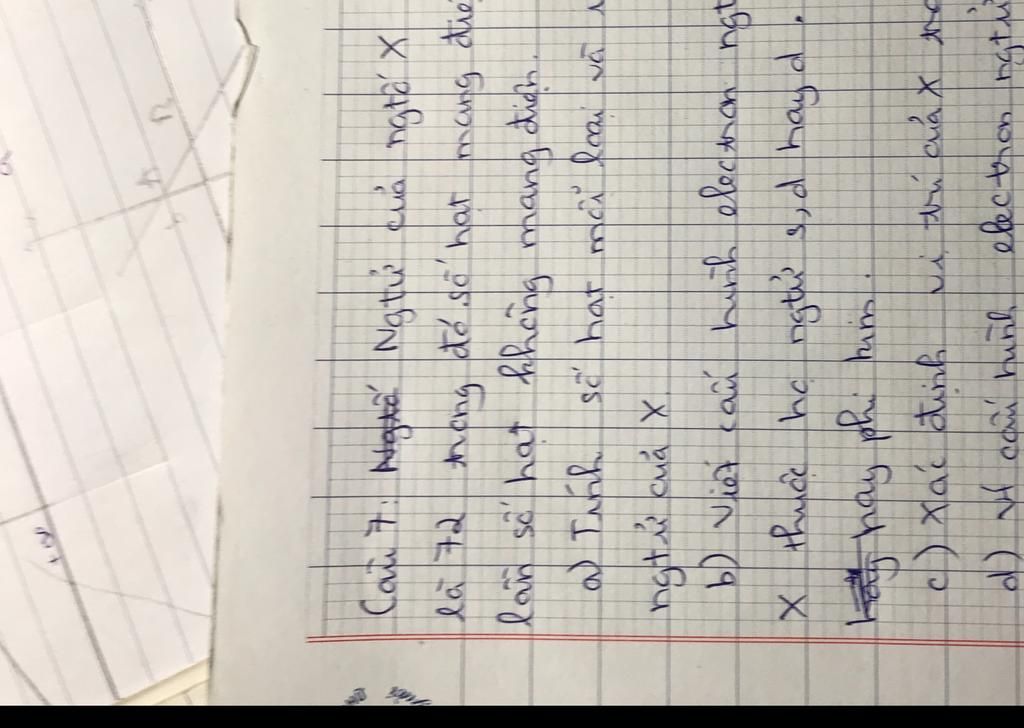 Câu 7: Ngtử của ngtố X
là 72 trong đó số hạt mang điệ
lần số hạt không mang điện.
a) Tính số hạt mỗi loại và
ngtử của X
b) viết cấu hình electron ngt
X thuộc họ ngtử s, d hay d.
hay phi kim.
c) Xác định vị trí của X tr
d) Vt cấu hình electron ngtử